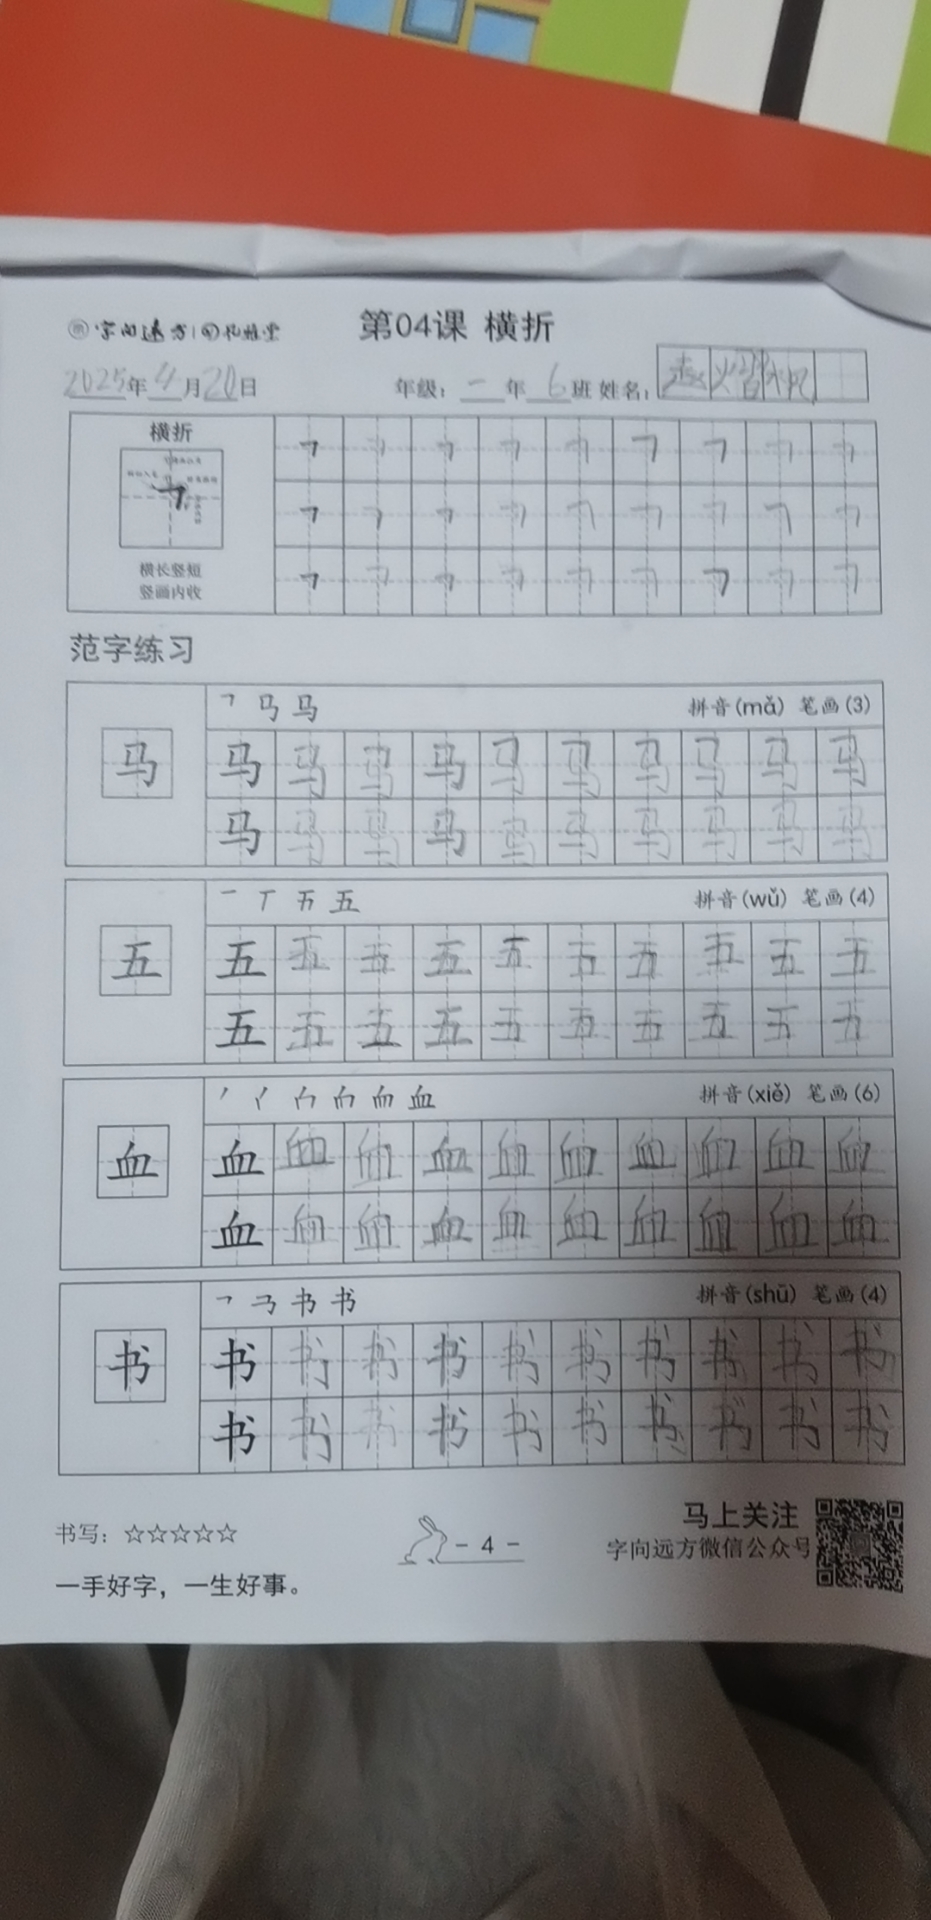 字向远方
第04课 横折
2025年4月20日 年级：一年6班 姓名：赵熠
横折
横长竖短
竖画内收
范字练习
㇕ 马 马 拼音(mǎ) 笔画(3)
马 马 马 马 马 马 马 马 马 马 马
马 马 马 马 马 马 马 马 马 马
一 丅 五 五 拼音(wǔ) 笔画(4)
五 五 五 五 五 五 五 五 五 五 五
五 五 五 五 五 五 五 五 五 五
血 拼音(xiě) 笔画(6)
血 血 血 血 血 血 血 血 血 血 血
血 血 血 血 血 血 血 血 血 血
㇕ 书 书 拼音(shū) 笔画(4)
书 书 书 书 书 书 书 书 书 书 书
书 书 书 书 书 书 书 书 书 书
书写：☆☆☆☆☆
一手好字，一生好事。
- 4 -
马上关注
字向远方微信公众号